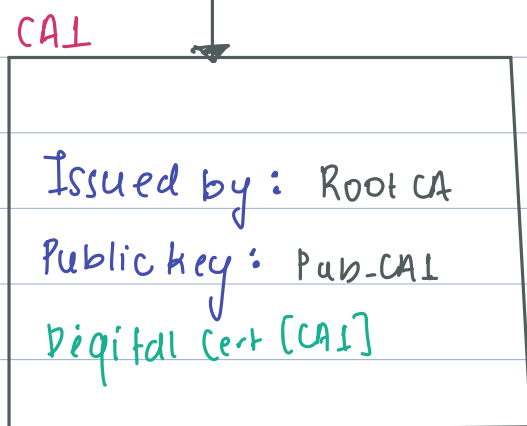 CA1
Issued by: Root CA
Public key: Pub_CA1
Digital Cert [CA1]